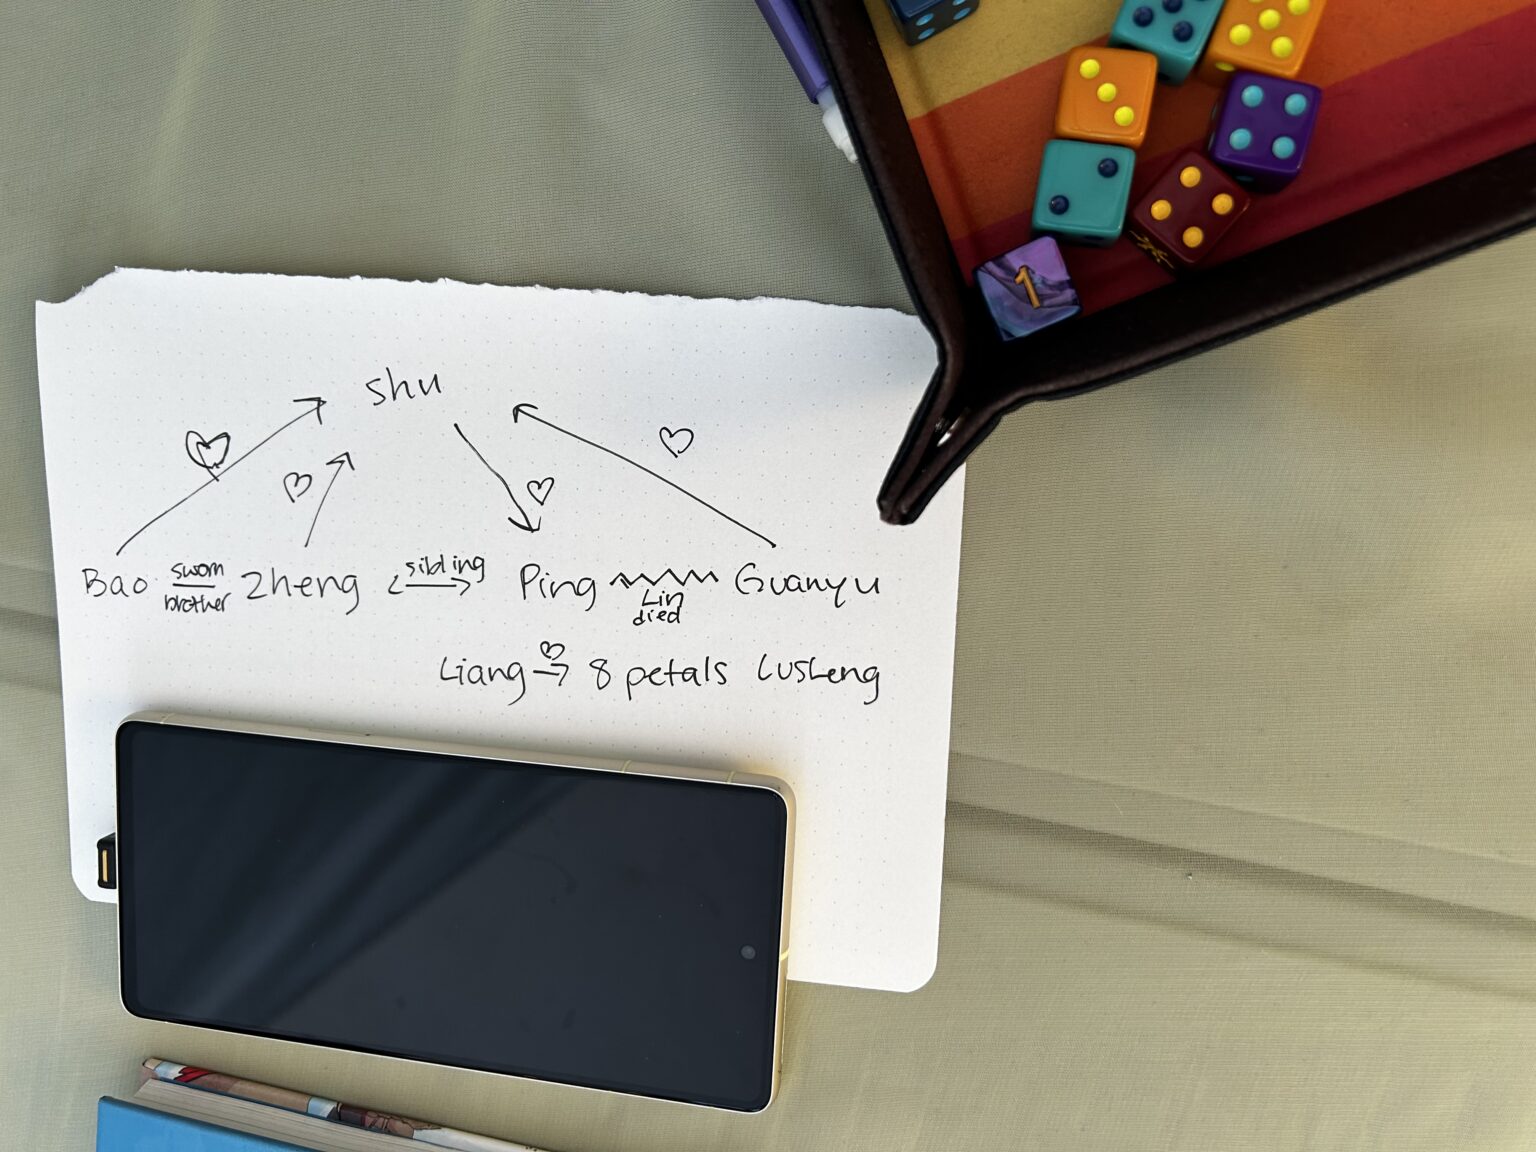 shu
Bao sworn brother Zheng sibling Ping Lin died Guanyu
Liang 8 petals Lusheng
1